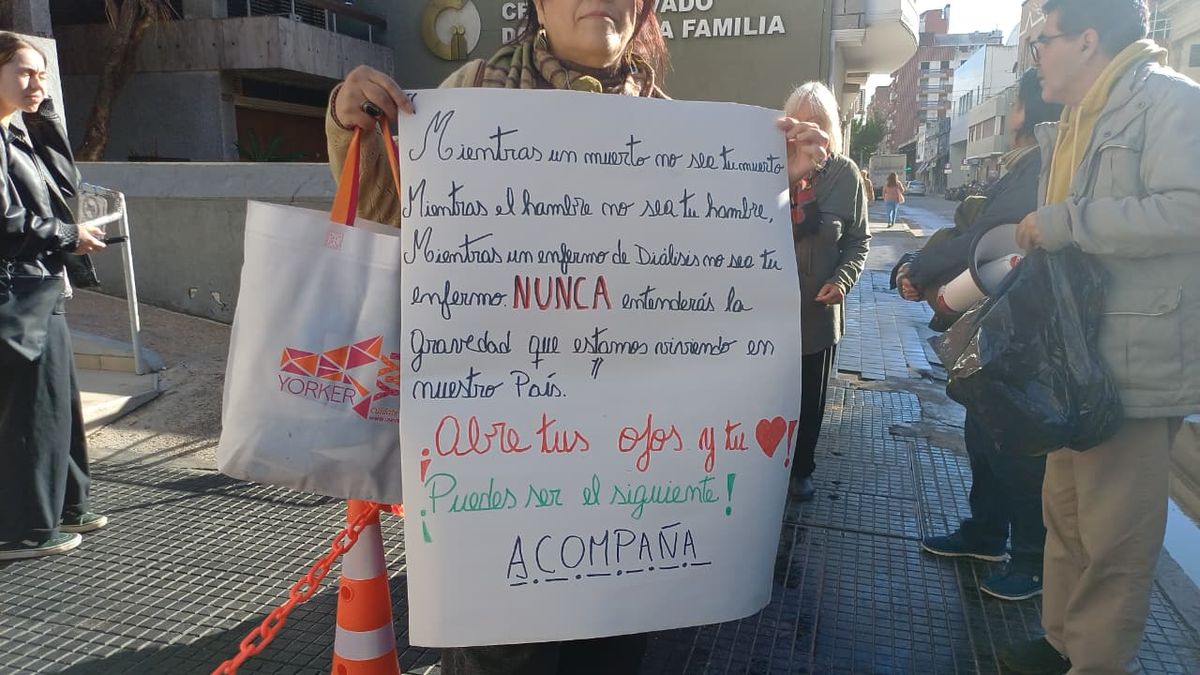 VADO
A FAMILIA
Mientras un muerto no sea tu muerto
Mientras el hambre no sea tu hambre,
Mientras un enfermo de Diálisis no sea tu
enfermo. NUNCA entenderás la
gravedad que estamos viviendo en
nuestro País.
¡Abre tus ojos y tu ❤!
¡Puedes ser el siguiente!
ACOMPAÑA
YORKER